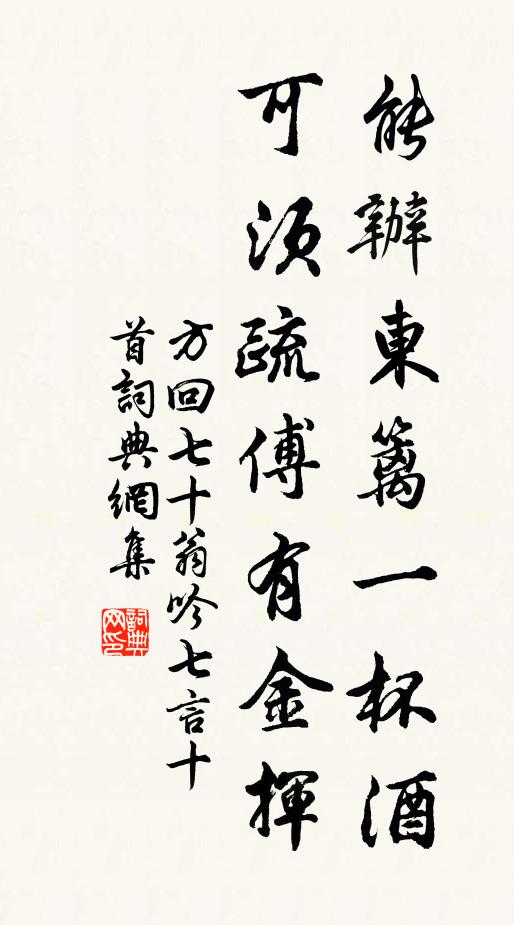 能辦東篱一杯酒
可須疏傅有金揮
方回七十翁吟七言十
首詞典網集
詞典
網印